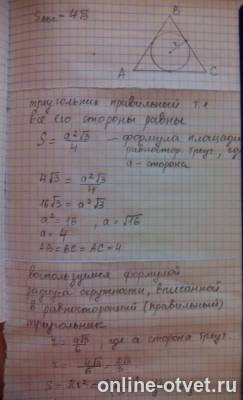 Sавс = 4√3
B
r
A
C
треугольник правильный т.к
все его стороны равны
S = a²√3/4 — формула площади
равностор. треуг., где
a - сторона
4√3 = a²√3/4
16√3 = a²√3
a² = 16, a = √16
a = 4
AB = BC = AC = 4
воспользуемся формулой
радиуса окружности, вписанной
в равносторонний (правильный)
треугольник
r = a√3/6, где a сторона треуг.
r = 4√3/6 = 2√3/3
online-otvet.ru